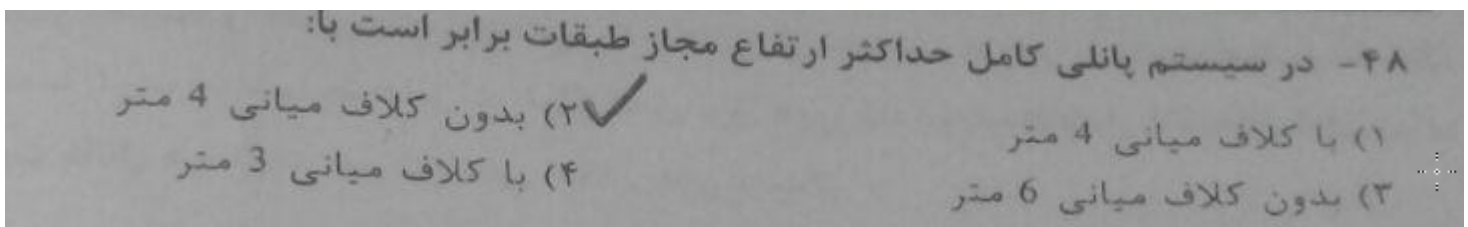 ۴۸- در سیستم پانلی کامل حداکثر ارتفاع مجاز طبقات برابر است با:
۱) با کلاف میانی 4 متر
۲) بدون کلاف میانی 4 متر
۳) بدون کلاف میانی 6 متر
۴) با کلاف میانی 3 متر